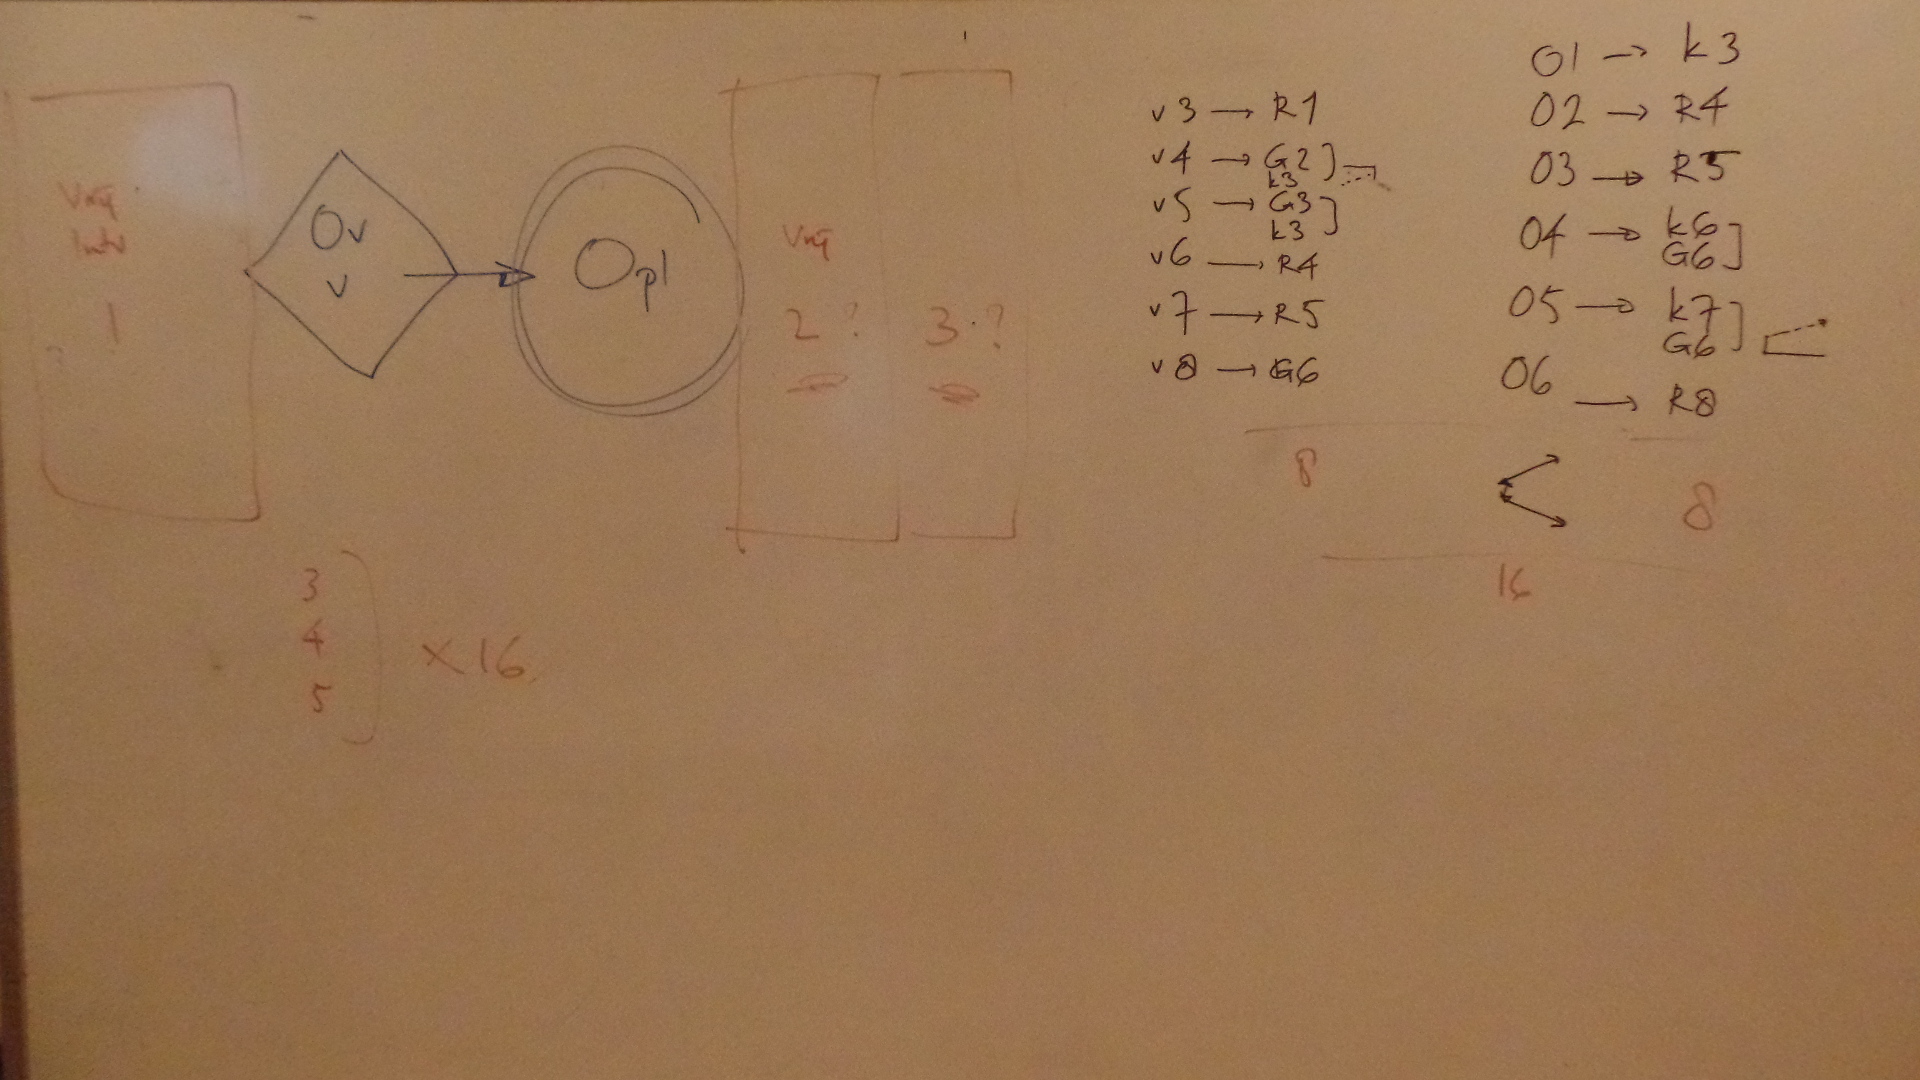 Vrg
Intv
1
Ov
v
Opl
Vrg
2 ?
3 ?
3
4
5
×16
v3 → R1
v4 → G2
k3
v5 → G3
k3
v6 → R4
v7 → R5
v8 → G6
8
O1 → k3
O2 → R4
O3 → R5
O4 → k6
G6
O5 → k7
G6
O6 → R8
8
16